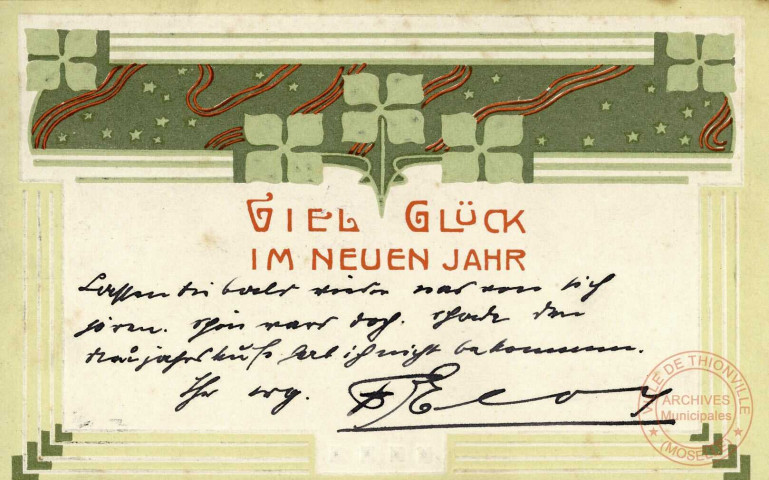 VIEL GLÜCK
IM NEUEN JAHR
Lassen Sie bald wieder was von sich
hören. Schön wars doch. Schade den
Neujahrskuß hab ich nicht bekommen.
Ihr erg. Eloy
VILLE DE THIONVILLE
ARCHIVES
Municipales
(MOSELLE)